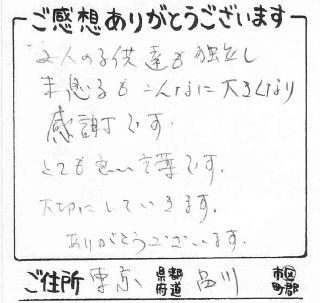 ご感想ありがとうございます
2人の子供達も独立し
末息子もこんなに大きくなり
感謝です。
とても良い言葉です。
大切にしています。
ありがとうございます。
ご住所 東京 都道府県 品川 市区町郡